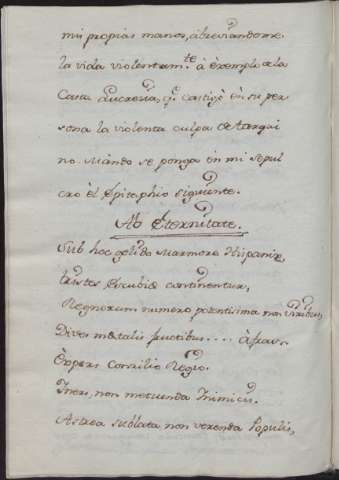 mis propias manos, abreviandome
la vida violentam.te à exemplo de la
Casta Lucrecia, q.e castigó en su per
sona la violenta culpa de Tarqui
no. Mando se ponga en mi sepul
cro èl Epitaphio siguiente.
Ab Eternitate.
Sub hoc gelido marmore Hispaniæ,
tristes Excubiæ continentur,
Regnorum numero potentisima non viribus,
Dives metalis fructibus....
Expers Consilio Regio.
Iners, non metuenda Inimicis.
Astrea sublata non verenda Populis,